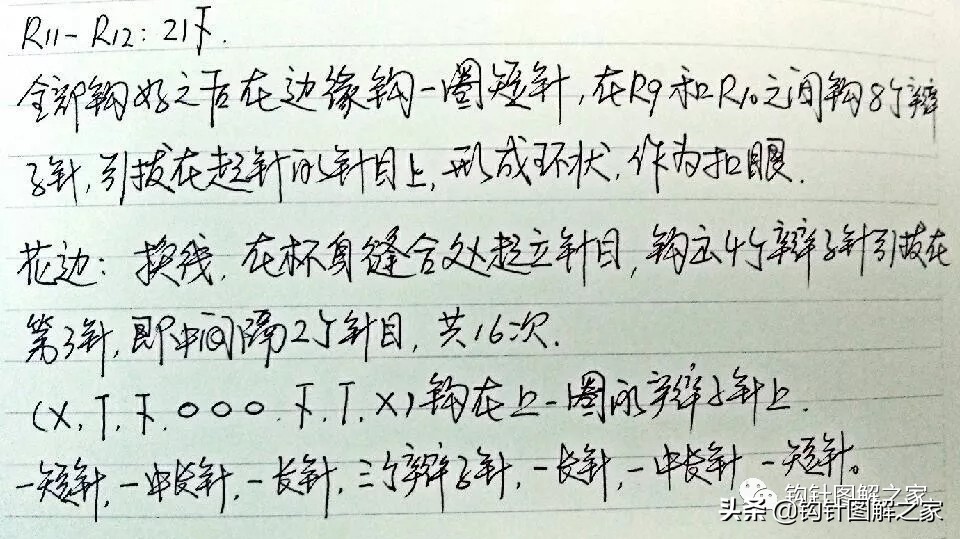 R11-R12: 21下.
全部钩好之后在边缘钩一圈短针,在R9和R10之间钩8个辫
子针,引拔在起针的针目上,形成环状,作为扣眼.
花边: 换线,在杯身缝合处起立针目,钩出4个辫子针引拔在
第3针,即中间隔2个针目,共16次.
(X, T, 下, ○○○, 下, T, X) 钩在上一圈的辫子针上.
一短针,一中长针,一长针,三个辫子针,一长针,一中长针 一短针。
钩针图解之家
头条 @钩针图解之家